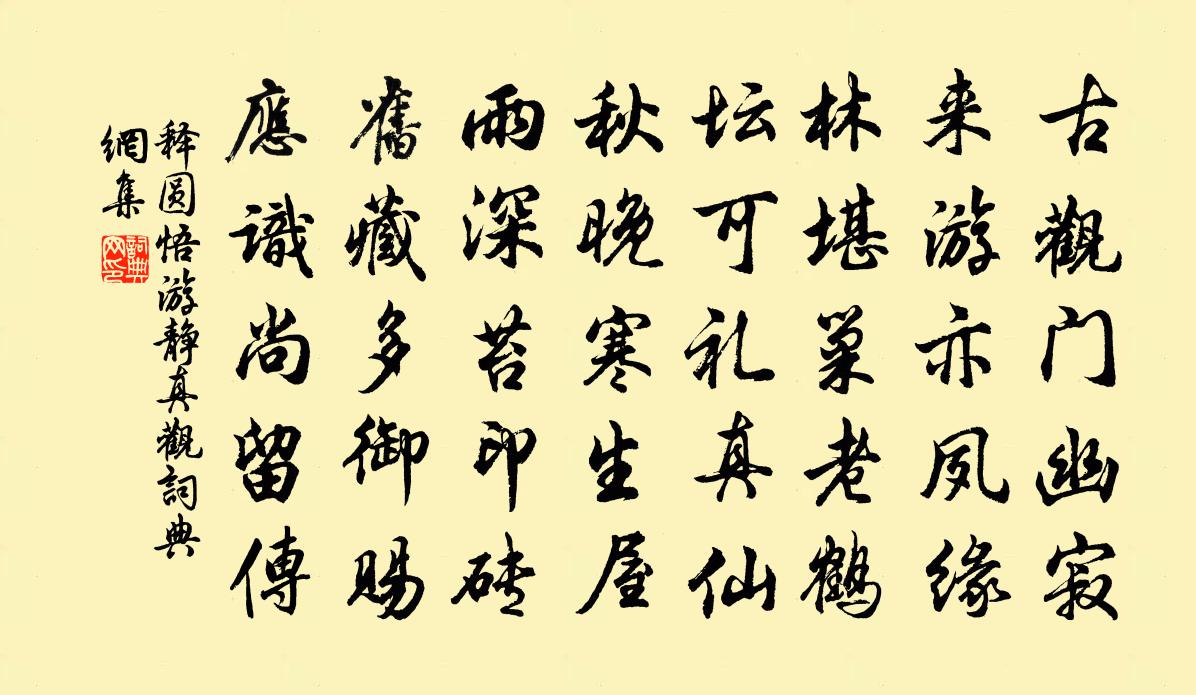 古觀门幽寂
来游亦夙缘
林堪巢老鹤
坛可礼真仙
秋晚寒生屋
雨深苔印砖
舊藏多御賜
應識尚留傳
释圆悟游静真觀詞典
網集
詞典网印